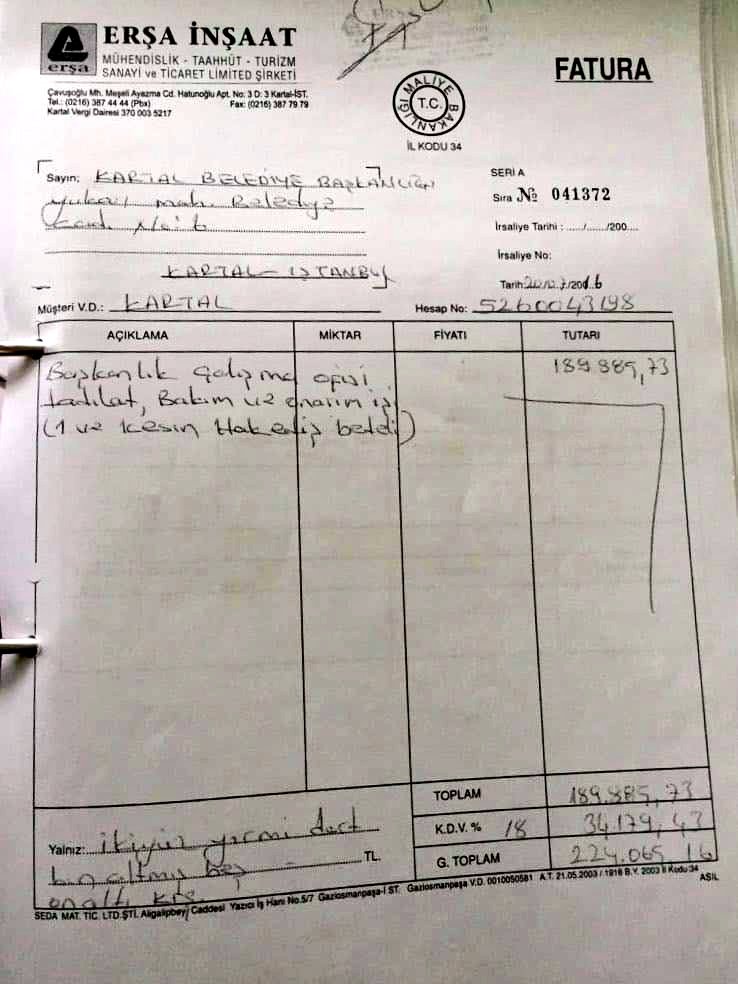 ERŞA İNŞAAT
erşa
MÜHENDİSLİK - TAAHHÜT - TURİZM
SANAYİ ve TİCARET LİMİTED ŞİRKETİ
Çavuşoğlu Mh. Meşeli Ayazma Cd. Hatunoğlu Apt. No: 3 D: 3 Kartal-İST.
Tel.: (0216) 387 44 44 (Pbx) Fax: (0216) 387 79 79
Kartal Vergi Dairesi 370 003 5217
FATURA
T.C. MALİYE BAKANLIĞI
İL KODU 34
Sayın; KARTAL BELEDİYE BAŞKANLIĞI
Belediye
KARTAL-İSTANBUL
Müşteri V.D.: KARTAL
SERİ A
Sıra № 041372
İrsaliye Tarihi : ....../....../200....
İrsaliye No:
Tarih: /201
Hesap No: 5260043198
AÇIKLAMA MİKTAR FİYATI TUTARI
Başkanlık Çalışma ofisi 189.885,73
tadilat, Bakım ve onarım işi
(1 ve kesin Hakediş bedeli)
TOPLAM 189.885,73
K.D.V. % 18 34.179,43
G. TOPLAM 224.065,16
Yalnız: ikiyüz yirmi dört
bin altmış beş TL.
onaltı krş.
SEDA MAT. TİC. LTD.ŞTİ. Aligalipbey Caddesi Yazıcı İş Hanı No.5/7 Gaziosmanpaşa-İST. Gaziosmanpaşa V.D. 0010050581 A.T. 21.05.2003 / 1918 B.Y. 2003 İl Kodu:34
ASIL